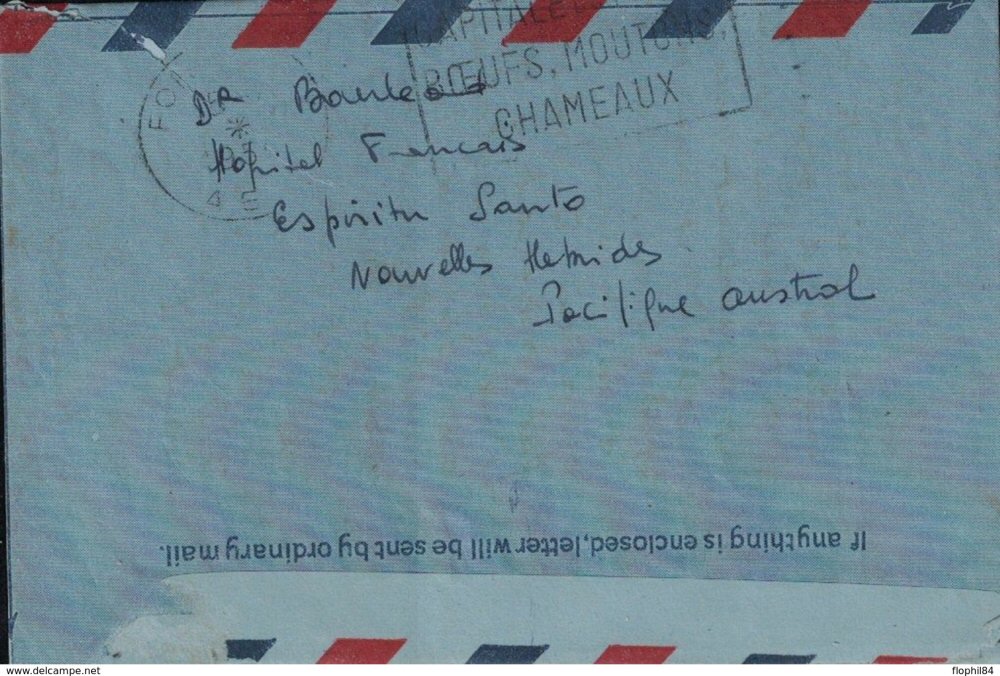 BŒUFS, MOUTONS,
CHAMEAUX
DR
Hopital Francais
Espiritu Santo
Nouvelles Hebrides
Pacifique austral
If anything is enclosed, letter will be sent by ordinary mail.
www.delcampe.net
flophil84